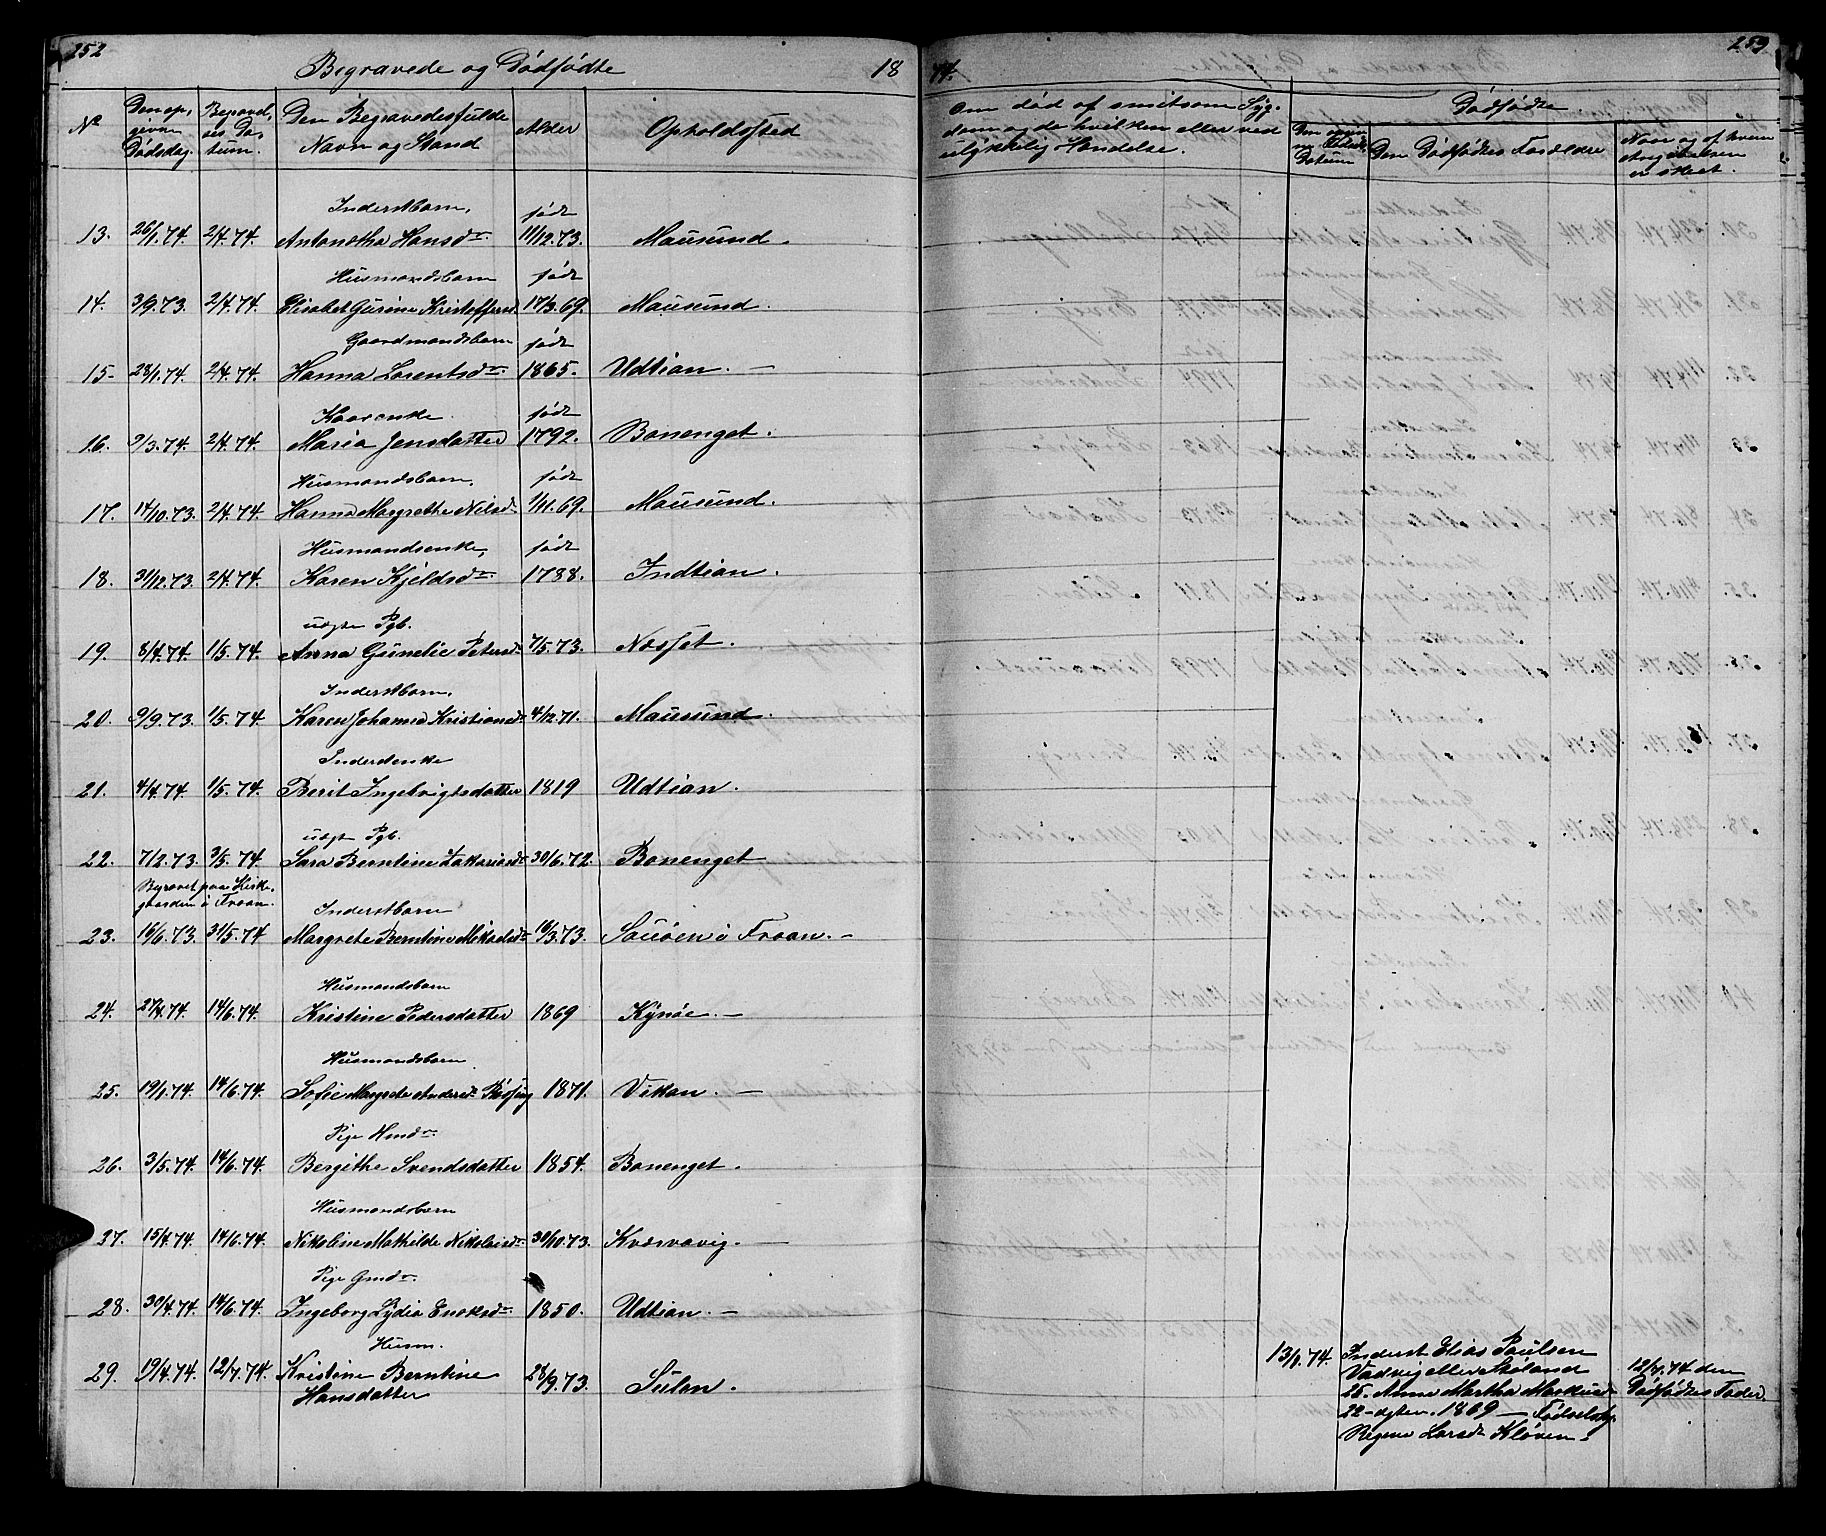 252
Begravede og Dødfødte
18
No
Den op,
given
Dødsdag.
Begravel,
ses Da,
tum.
Den Begravedes fulde
Navn og Stand
Alder
Opholdssted
13. 26/1.74. 2/4.74. Inderstbarn, Antonetha Hansdr. født 11/12.73. Mausund.
14. 3/9.73. 2/4.74. Husmandsbarn Elisabet Gurine Kristoffersd. født 17/3.69. Mausund.
15. 28/1.74. 2/4.74. Gaardmandsbarn Hanna Lorentsdr. født 1865. Udtian. —
16. 9/3.74. 2/4.74. Kaarenke. Maria Jensdatter født 1792. Bonenget.
17. 14/10.73. 2/4.74. Husmandsbarn. Hanna Margrethe Nilsd. født 1/11.69. Mausund.
18. 31/12.73. 2/4.74. Husmandsenke, Karen Kjeldsdr. født 1788. Indtian.
19. 8/4.74. 1/5.74. uægte Pgb. Anna Gunelie Petersdr 7/5.73. Næsset.
20. 9/9.73. 1/5.74. Inderstbarn. Karen Johanna Kristiansdr 4/12.71. Mausund.
21. 4/4.74. 1/5.74. Inderstenke Berit Ingebrigtsdatter 1819 Udtian.
22. 7/2.73. 3/5.74 uægt Pgb. Sara Berntine Zakariasdr 30/6.72. Bonenget
Begravet paa Kirke,
gaarden i Froan.
23. 16/6.73. 31/5.74 Inderstbarn Margrete Berntine Mikaelsdr 16/3.73. Sauøen i Froan. —
24. 27/4.74. 14/6.74. Husmandsbarn Kristine Pedersdatter 1869 Kynøe. —
25. 19/1.74. 14/6.74. Husmandsbarn Sofie Margrete Andersdr 1871. Vikan. —
26. 3/5.74. 14/6.74. Pige Hmdr. Bergithe Svendsdatter 1854. Bonenget.
27. 15/4.74. 14/6.74. Husmandsbarn Nikoline Mathilde Nikolaisdr 30/10.73. Kværnavig. —
28. 30/4.74. 14/6.74. Pige Gmdr. Ingeborg Lydia Enoksdr. 1850. Udtian. —
29. 19/4.74. 12/7.74. Husm. Kristine Berntine
Hansdatter 28/9.73. Sulen.
259
74.
Om død af smitsom Syg,
dom og da hvilken eller ved
ulykkelig Hændelse.
Dødfødte.
Datum
Den Dødfødtes Forældre
Naar og af hvem
er skeet.
13/1.74. Inderst Elias Paulsen
Vadvig eller Skiland
25. Anne Martha Markusd
22-dgter. 1869 — Fødselshj.
Regine Larsdr Kløven.
12/7.74 den
Dødfødtes Fader.